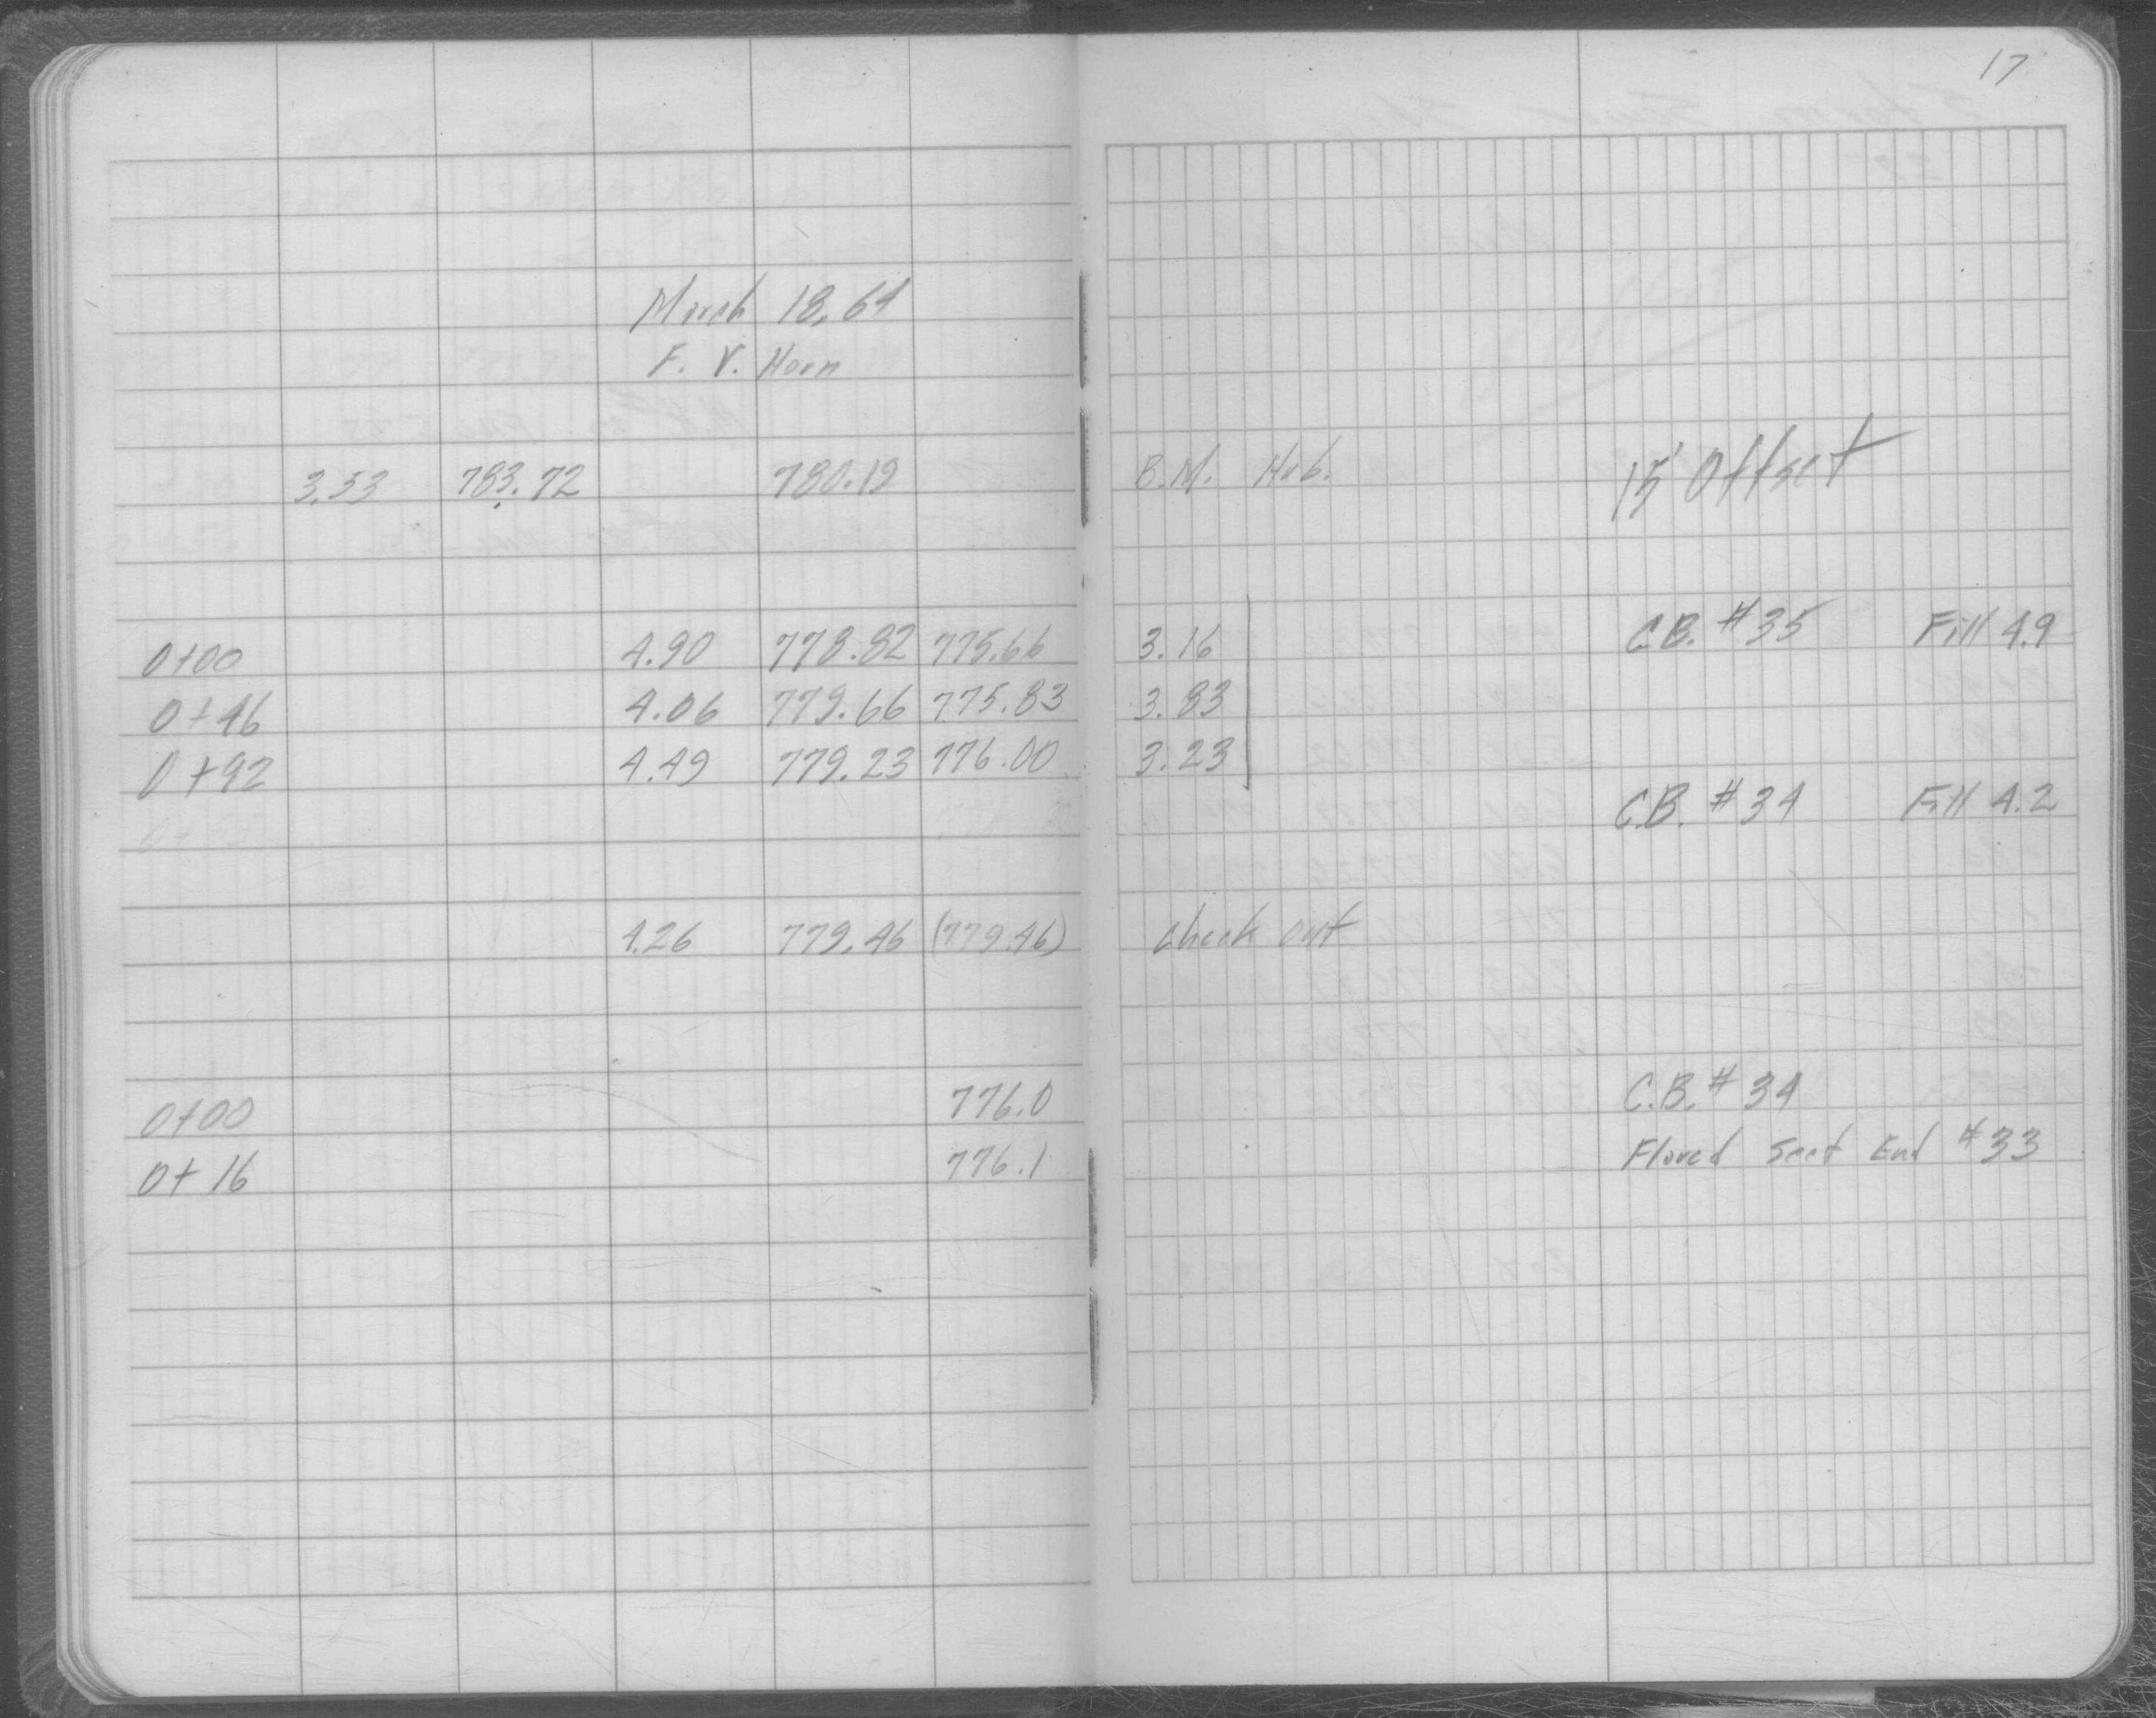 17
March 18, 64
F. V. Horn
3.53 783.72 780.19 B.M. Hub. 15' Offset
0+00 4.90 778.82 775.66 3.16 C.B. #35 Fill 4.9
0+46 4.06 779.66 775.83 3.83
0+92 4.49 779.23 776.00 3.23
C.B. #34 Fill 4.2
4.26 779.46 (779.46) check out
0+00 776.0 C.B. #34
0+16 776.1 Flared Sect End #33